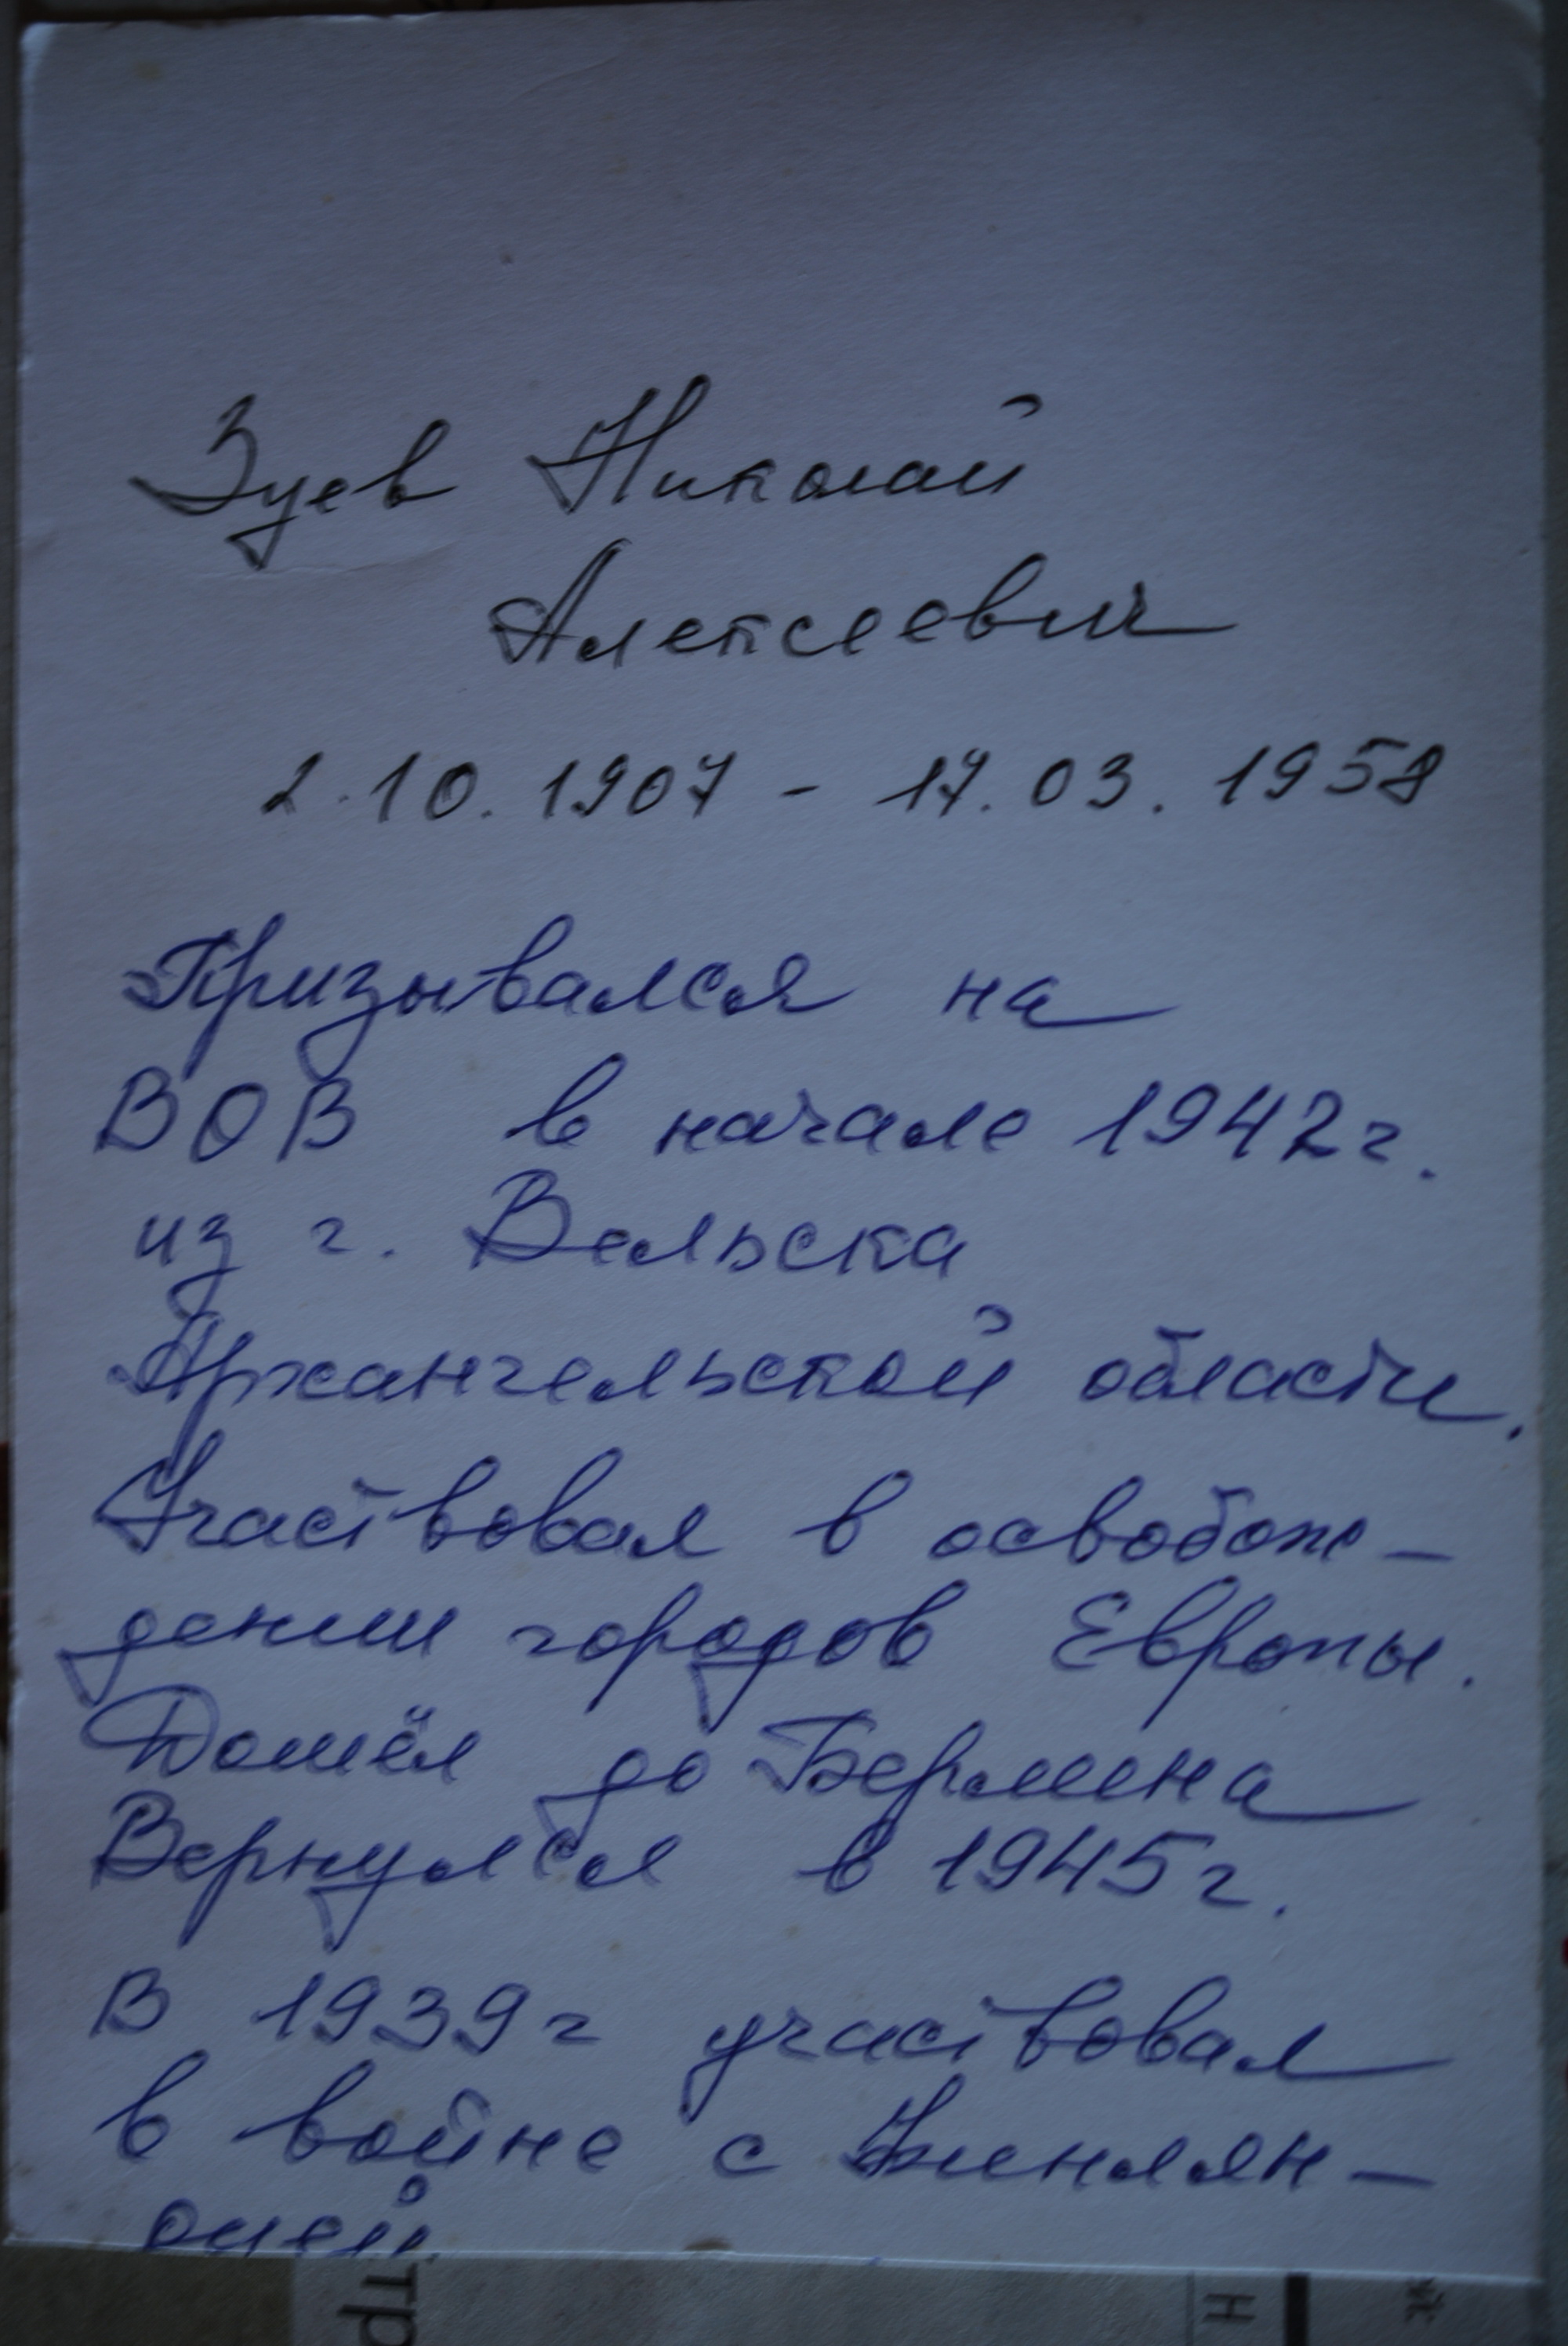 Зуев Николай
Алексеевич
2.10.1907 - 17.03.1958
Призывался на
ВОВ в начале 1942г.
из г. Вельска
Архангельской области.
Участвовал в освобож-
дении городов Европы.
Дошёл до Берлина
Вернулся в 1945г.
В 1939г участвовал
в войне с Финлян-
дией
тр
н